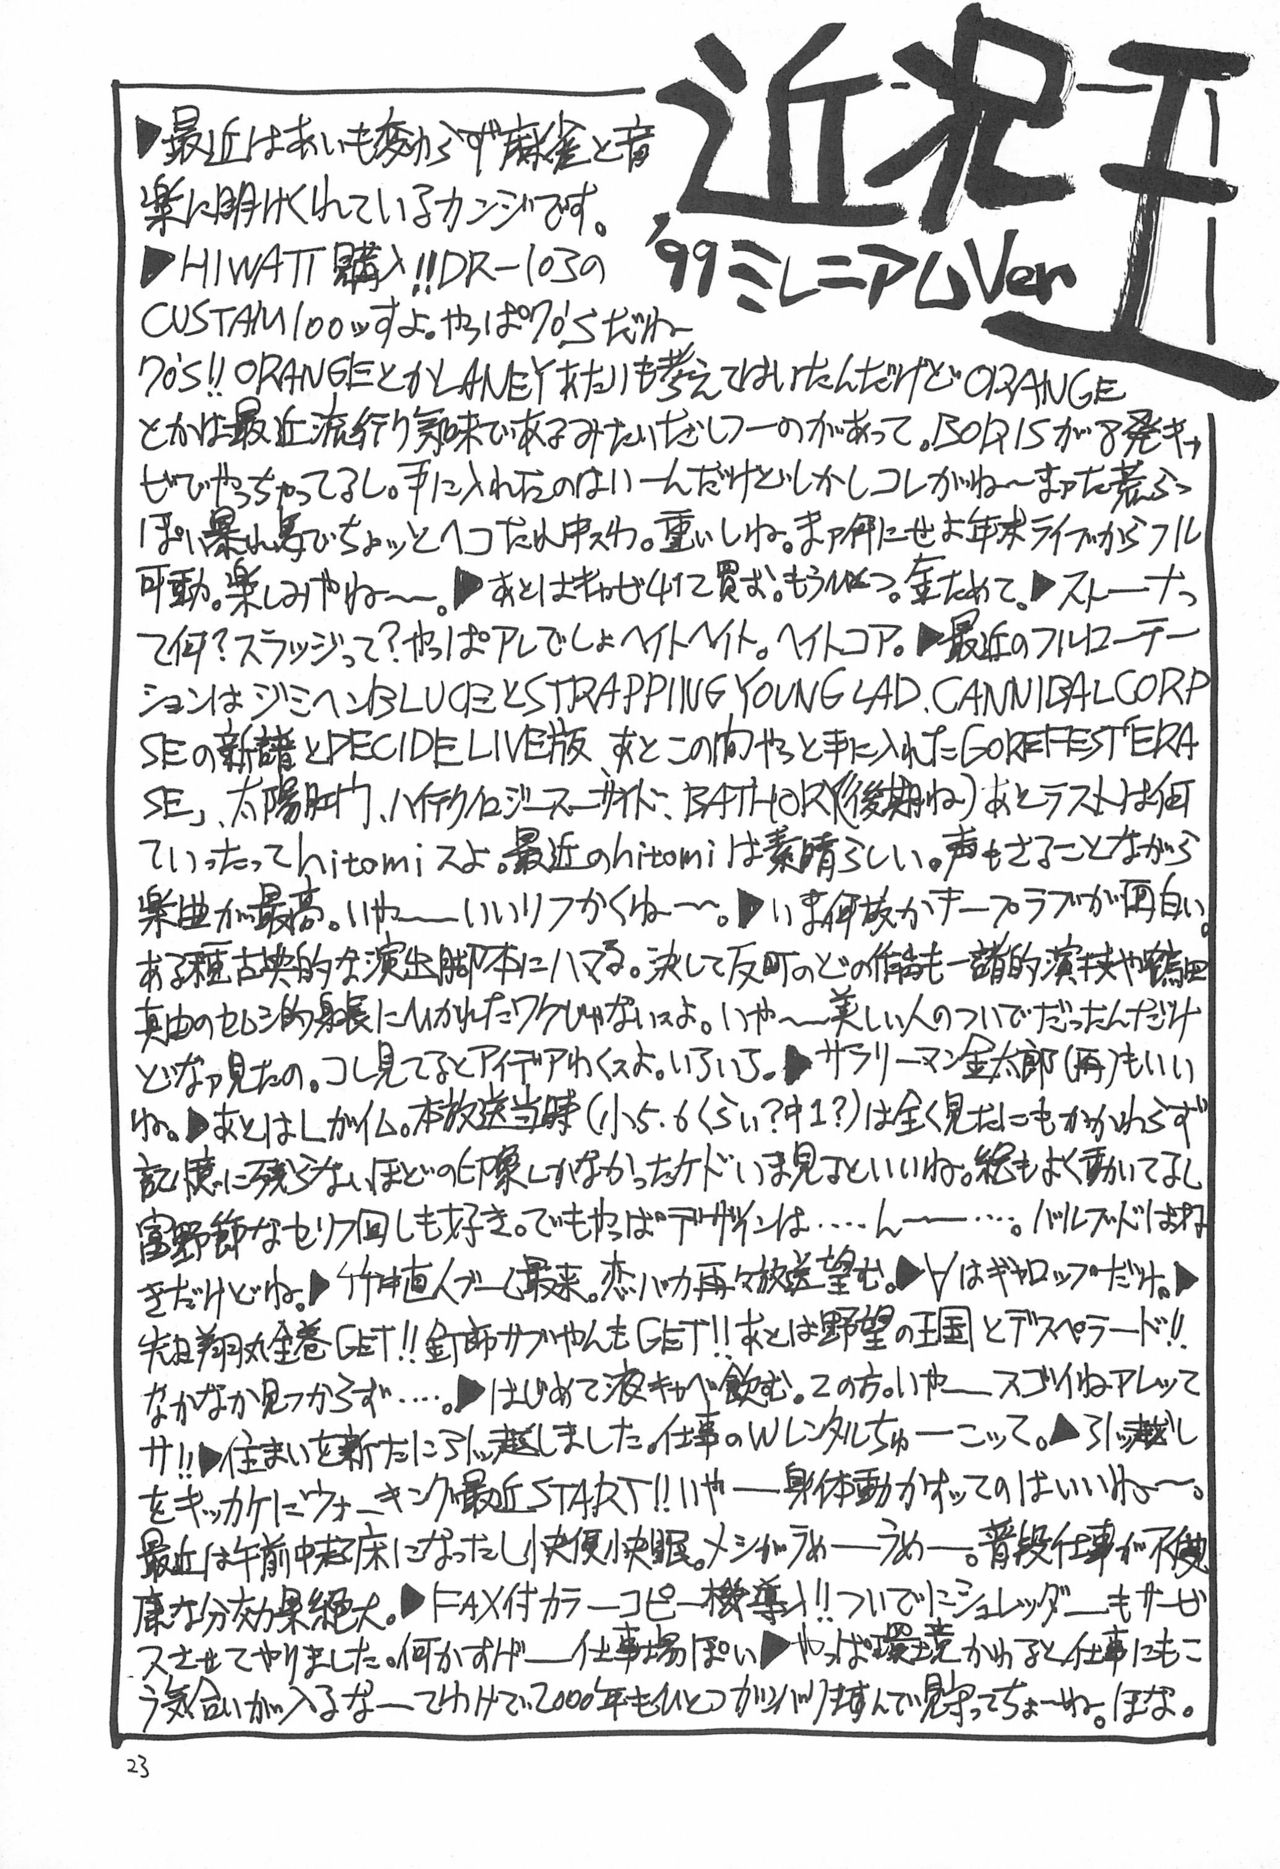 近況王
'99ミレニアムVer
▶最近はあいも変わらず麻雀と音
楽に明けくれているカンジです。
▶HIWATT購入!!DR-103の
CUSTAM100ッすよ。やっぱ70'Sだね〜
70'S!!ORANGEとかLANEYあたりも考えてはいたんだけどORANGE
とかは最近流行り気味であるみたいだしフーのがあって。BORISが8発キャ
ビでやっちゃってるし。手に入れたのはいーんだけどしかしコレがね〜まァた荒らっ
ぽい暴れ馬でちょッとヘコたれ中スわ。重いしね。まァ何にせよ年末ライブからフル
可動。楽しみやね〜〜。▶あとはキャビ4けて買む。もうひとつ。金ためて。▶ストーナっ
て何?スラッジって?やっぱアレでしょヘイトヘイト。ヘイトコア。▶最近のフルローテー
ションはジミヘンBLUCEとSTRAPPING YOUNG LAD、CANNIBALCORP
SEの新譜とDECIDE LIVE版 あとこの間やっと手に入れたGOREFEST「ERA
SE」、太陽肛門、ハイテクノロジースーサイド、BATHORY(後期ね)あとラストは何
ていったってhitomiスよ。最近のhitomiは素晴らしい。声もさることながら
楽曲が最高。いや〜〜いいリフかくね〜〜。▶いま何故かオープラブが面白い。
ある種古典的な演出脚本にハマる。決して反町のどの作品も一諸的演技や鶴田
真由のセムシ的身長にひかれたワケじゃないスよ。いや〜〜美しい人のついでだったんだけ
どなァ見たの。コレ見てるとアイデアわくスよ。いろいろ。▶サラリーマン金太郎(再)もいい
ね。▶あとはLガイム。本放送当時(小5.6くらい?中1?)は全く見たにもかかわらず
記憶に残らないほどの印象しかなかったケドいま見るといいね。絵もよく動いてるし
富野節なセリフ回しも好き。でもやっぱデザインは‥‥ん〜〜‥‥。バルブドはね
きだけどね。▶竹中直人ブーム最来。恋バカ再々放送望む。▶∀はギャロップだね。▶
先日翔丸全巻GET!!釘師サブやんもGET!!あとは野望の王国とデスペラード!!
なかなか見つからず‥‥。▶はじめて液キャベ飲む。2の方。いや〜スゴイねアレッて
サ!!▶住まいを新たに引ッ越しました。仕事のWレンタルちゅーこって。▶引ッ越し
をキッカケにウォーキング最近START!!いや〜身体動かすッてのはいいね〜〜。
最近は午前中起床になったし快便快眠。メシがうめーうめー。普段仕事が不健
康な分効果絶大。▶FAX付カラーコピー機導入!!ついでにシュレッダーもサービ
スさせてやりました。何かすげー仕事場ぽい▶やっぱ環境かわると仕事にもこ
う気合いが入るなーてわけで2000年もひとつガンバリますんで見守ってちょーね。ほな。
23